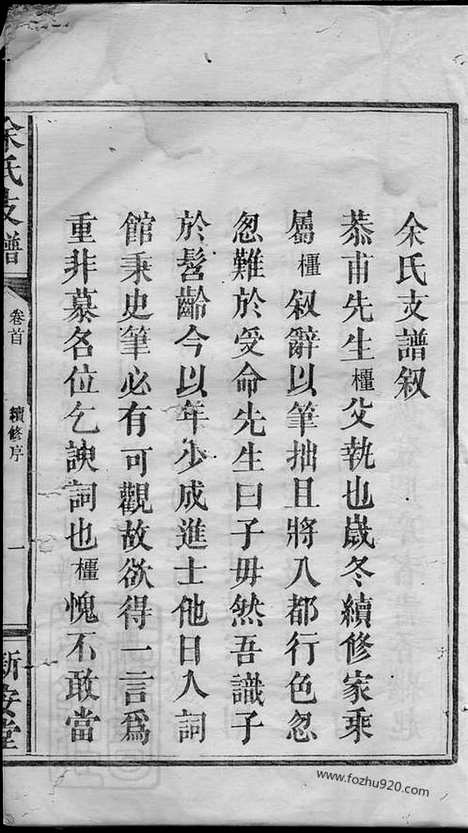 余氏支譜叙
恭甫先生櫃父執也歲冬續修家乘
屬櫃叙辭以筆拙且將入都行色忽
怱難於受命先生曰子毋然吾識子
於髫齡今以年少成進士他日入詞
館秉史筆必有可觀故欲得一言爲
重非慕名位乞諛詞也櫃愧不敢當
余氏支譜
卷首
續修序
一
新安堂
www.fozhu920.com